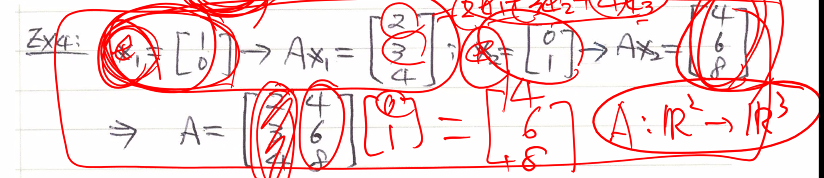 2x₁+3x₂+4x₃
Ex4: x₁ = [1 0] → Ax₁ = [2 3 4] ; x₂ = [0 1] → Ax₂ = [4 6 8]
⇒ A = [2 4 3 6 4 8] [0 1] = [4 6 8] A : ℝ² → ℝ³